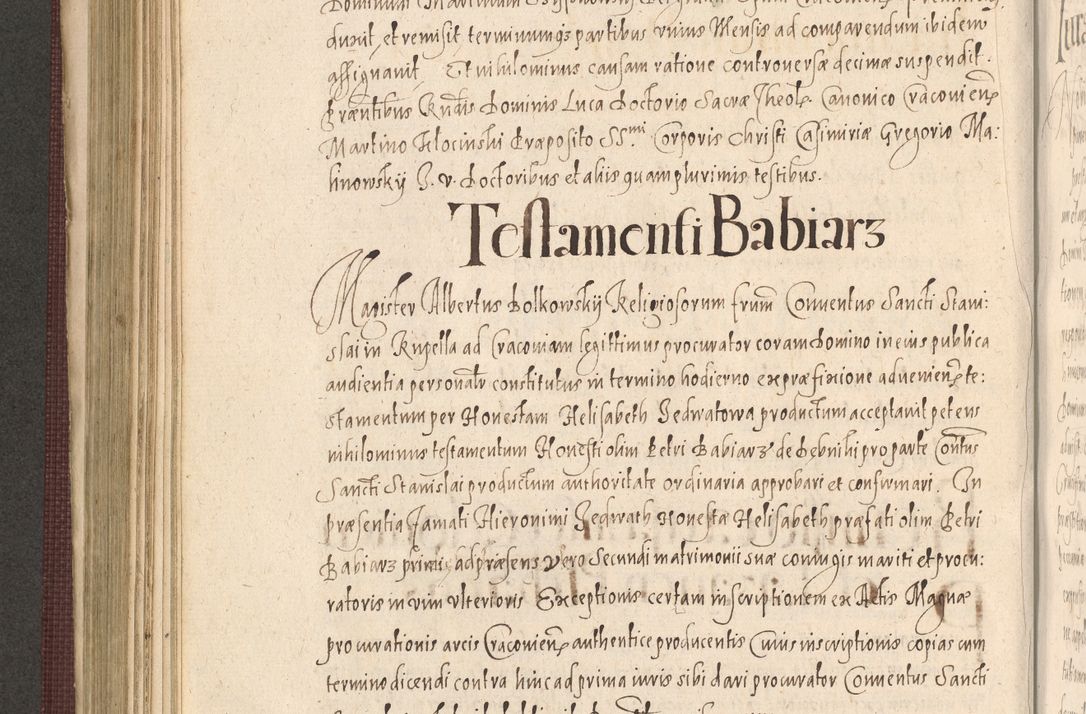 duxit, et remisit terminumqз partibus unius Mensis ad comparendum ibidem
assignavit. Et nihilominus causam ratione controversæ decimæ suspendit.
Præntibus Rndis Dominis Luca Doctorio Sacræ Theolę. Canonico Cracovienę
Martino Klocinski Præposito SSmi Corporis Christi Casimiriæ Gregorio Ma:
linowskÿ I. v. Doctoribus et aliis quamplurimis testibus.
Testamenti Babiarz
Magister Albertus Bolkowskÿ Religiosorum frum Conventus Sancti Stani:
slai in Rupella ad Cracoviam legittimus procurator coram Domino in eius publica
audientia personalr constitutus in termino hodierno ex præfixione advenienę te:
stamentum per Honestam Helisabeth Jedwatowa productum acceptavit petens
nihilominus testamentum Honesti olim Petri Babiarz de Dębniki pro parte Contus
Sancti Stanislai productum authoritate ordinaria approbari et confirmari. In
præsentia Famati Hieronimi Jedwath Honestæ Helisabeth præfati olim Petri
Babiarz primi, ad præsens vero Secundi matrimonii suæ coniugis mariti et procu:
ratoris in vim ulterioris Exceptionis certam inscriptionem ex Actis Magnæ
procurationis arcis Cracovienę authentice producentis Cuius inscriptionis copias cum
termino dicendi contra hinc ad prima iuris sibi dari procurator Conventus Sancti